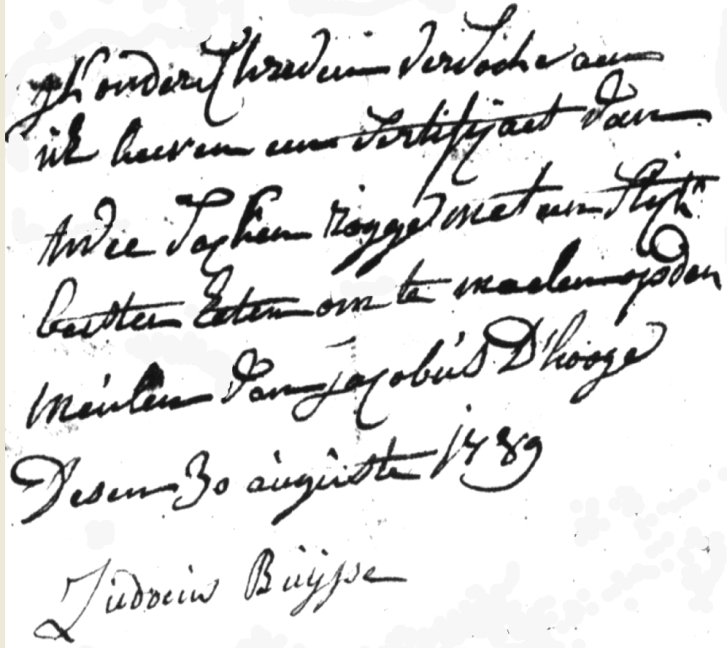 jk onderschreven versoecke aen
ick lieven een sertifijcaet van
twee sacken rogge met een stijck
besten Eeten om te maelen op den
meulen van jacobus D'hooge
Desen 30 auguste 1789
Ludovius Buijsse